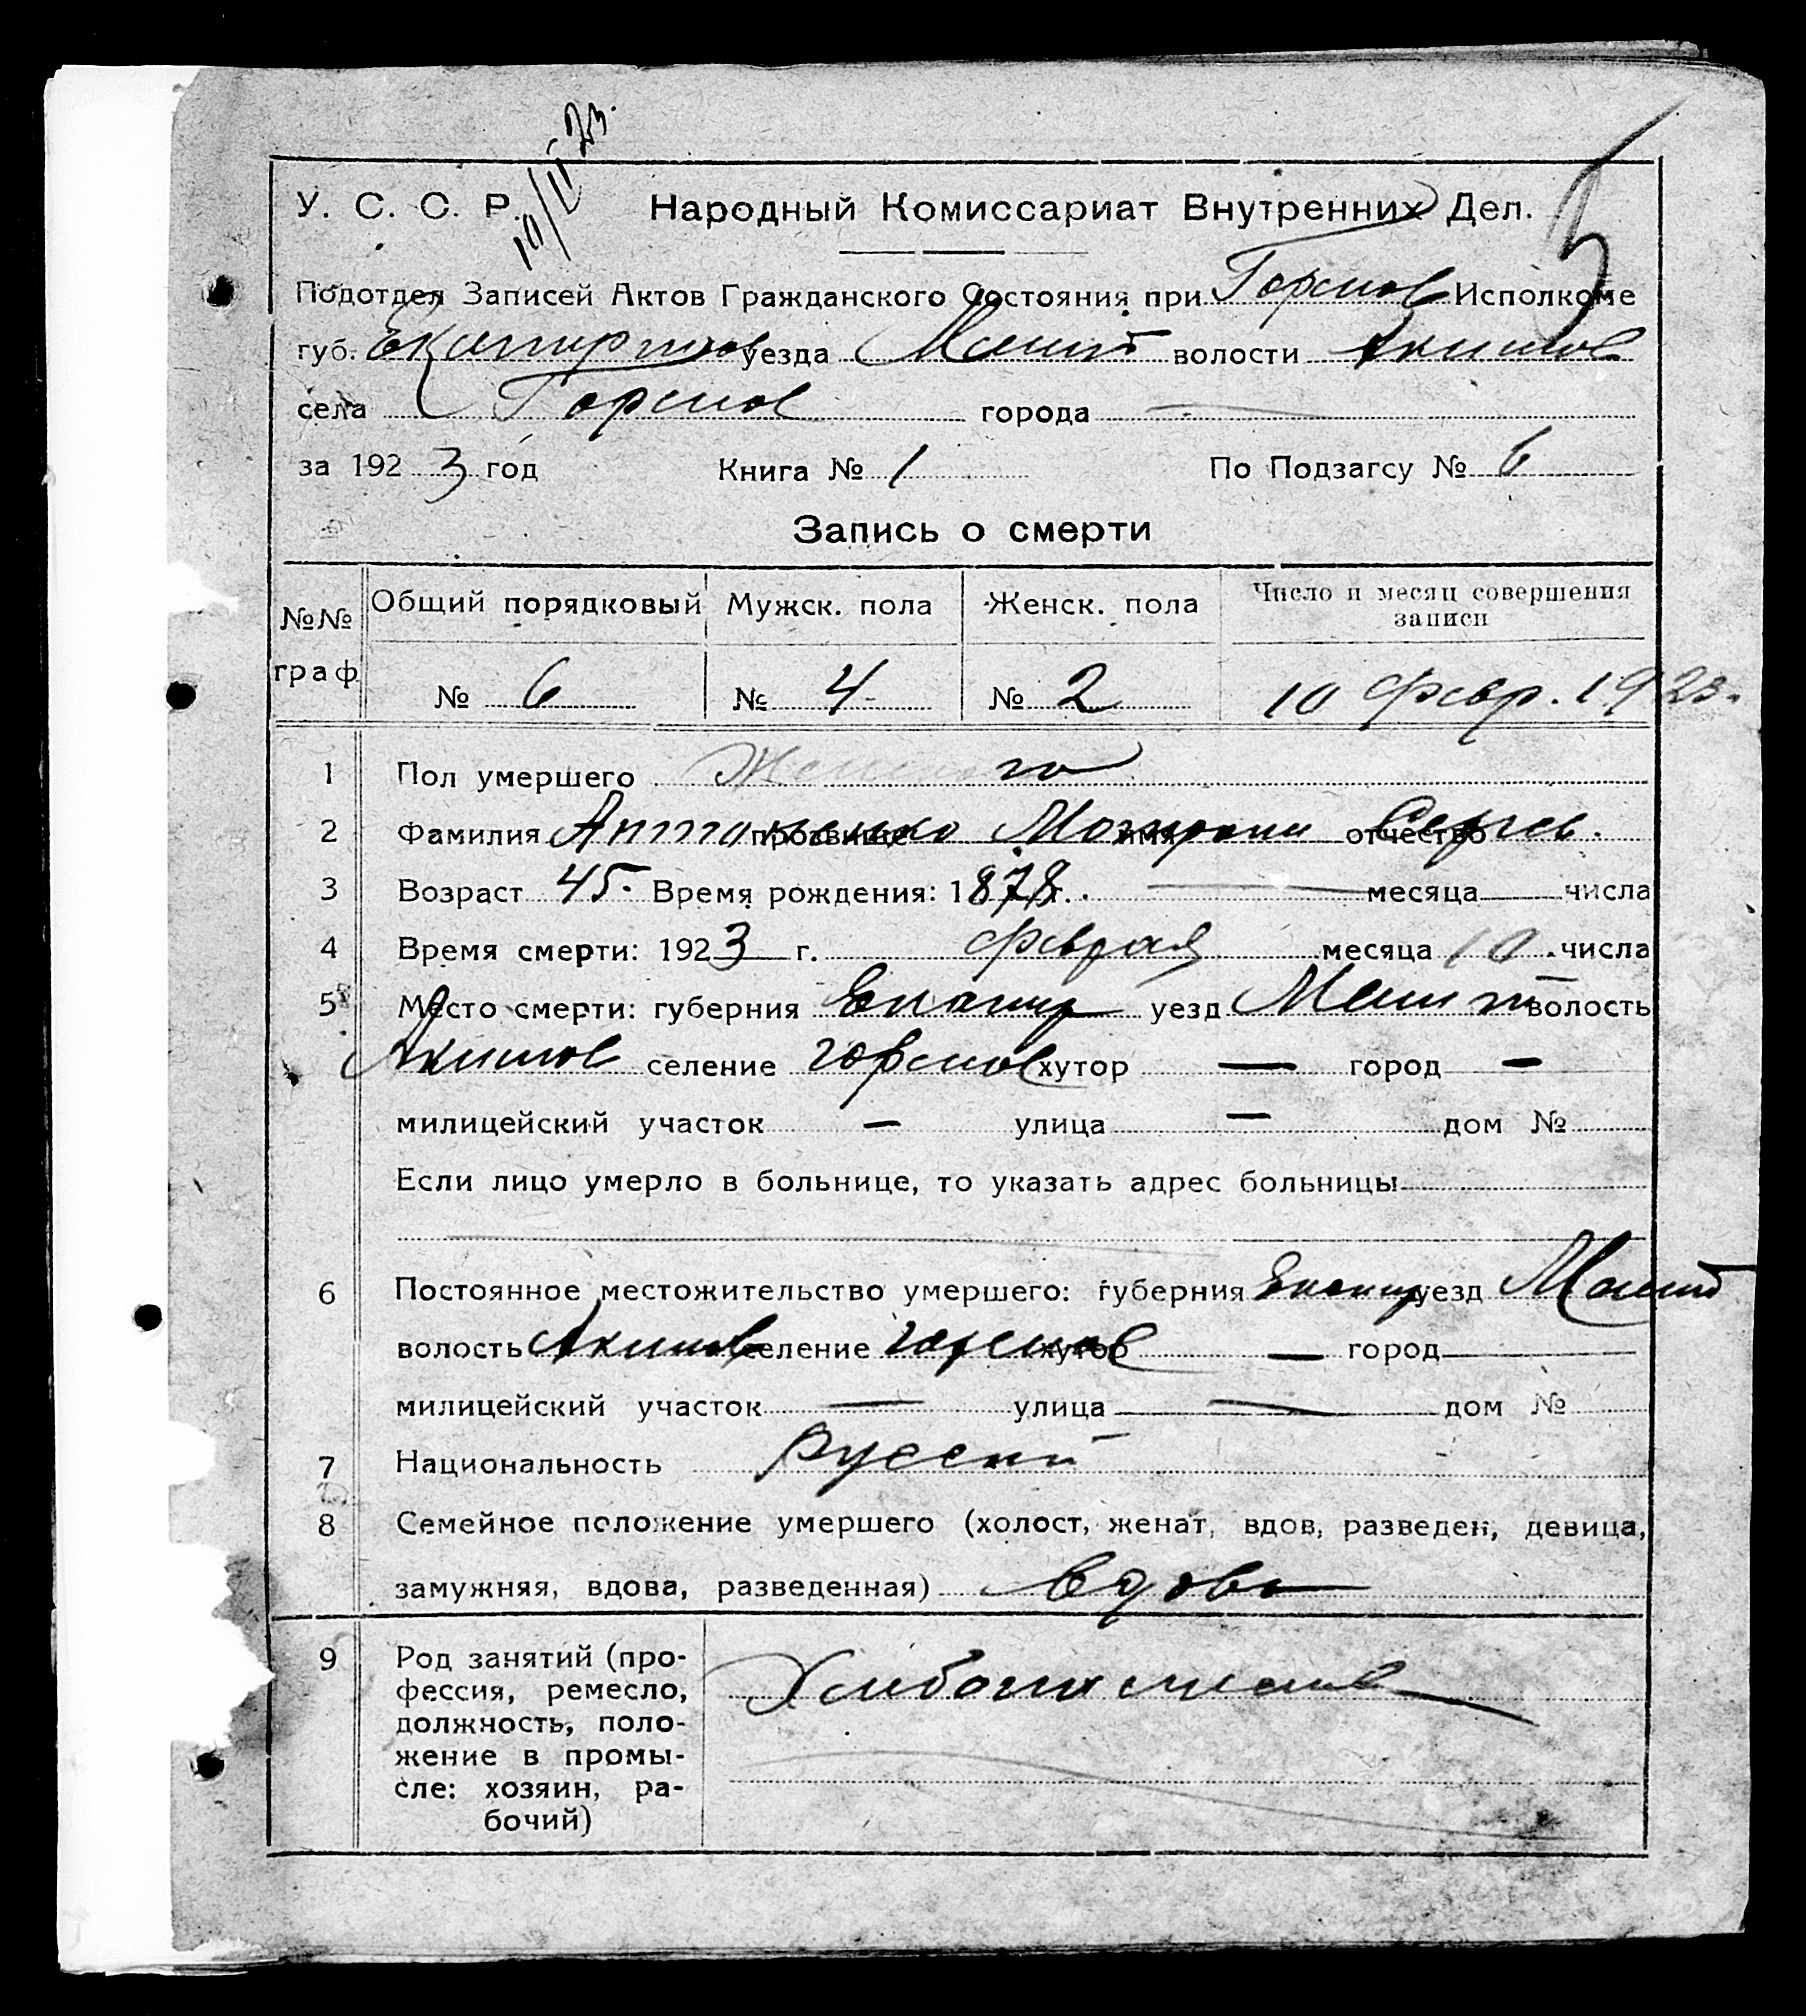 10/II 23.
5
У. С. С. Р. Народный Комиссариат Внутренних Дел.
Подотдел Записей Актов Гражданского Состояния при Исполкоме
губ. уезда Мелит волости Акимов
села города —
за 1923 год Книга № 1 По Подзагсу № 6
Запись о смерти
№№ граф Общий порядковый Мужск. пола Женск. пола Число и месяц совершения записи
№ 6 № 4 № 2 10 февр. 1923.
1 Пол умершего Женского
2 Фамилия прозвище имя отчество Сергев.
3 Возраст 45. Время рождения: 1878 г. — месяца — числа
4 Время смерти: 1923 г. месяца 10 числа
5 Место смерти: губерния Екатер уезд Мелит волость
Акимов селение хутор — город —
милицейский участок — улица — дом №
Если лицо умерло в больнице, то указать адрес больницы
6 Постоянное местожительство умершего: губерния Екатер уезд Мелит
волость Акимов селение хутор — город —
милицейский участок — улица — дом №
7 Национальность Русский
8 Семейное положение умершего (холост, женат, вдов, разведен, девица,
замужняя, вдова, разведенная) вдова
9 Род занятий (про-
фессия, ремесло,
должность, поло-
жение в промы-
сле: хозяин, ра-
бочий)